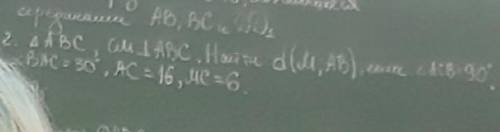 серединами AB, BC и
2. △ABC, CM⊥ABC. Найти d(M, AB), если ∠ACB=90°,
∠BAC=30°, AC=16, MC=6.